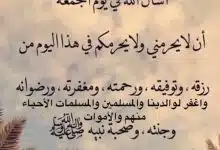 أسأل الله في يوم الجمعة
أن لا يحرمني ولا يحرمكم في هذا اليوم من
رزقه ، وتوفيقه ، ورحمته ، ومغفرته ، ورضوانه
واغفر لوالدينا والمسلمين والمسلمات الأحياء
منهم والأموات
وجنته ، وصحبة نبيه ﷺ